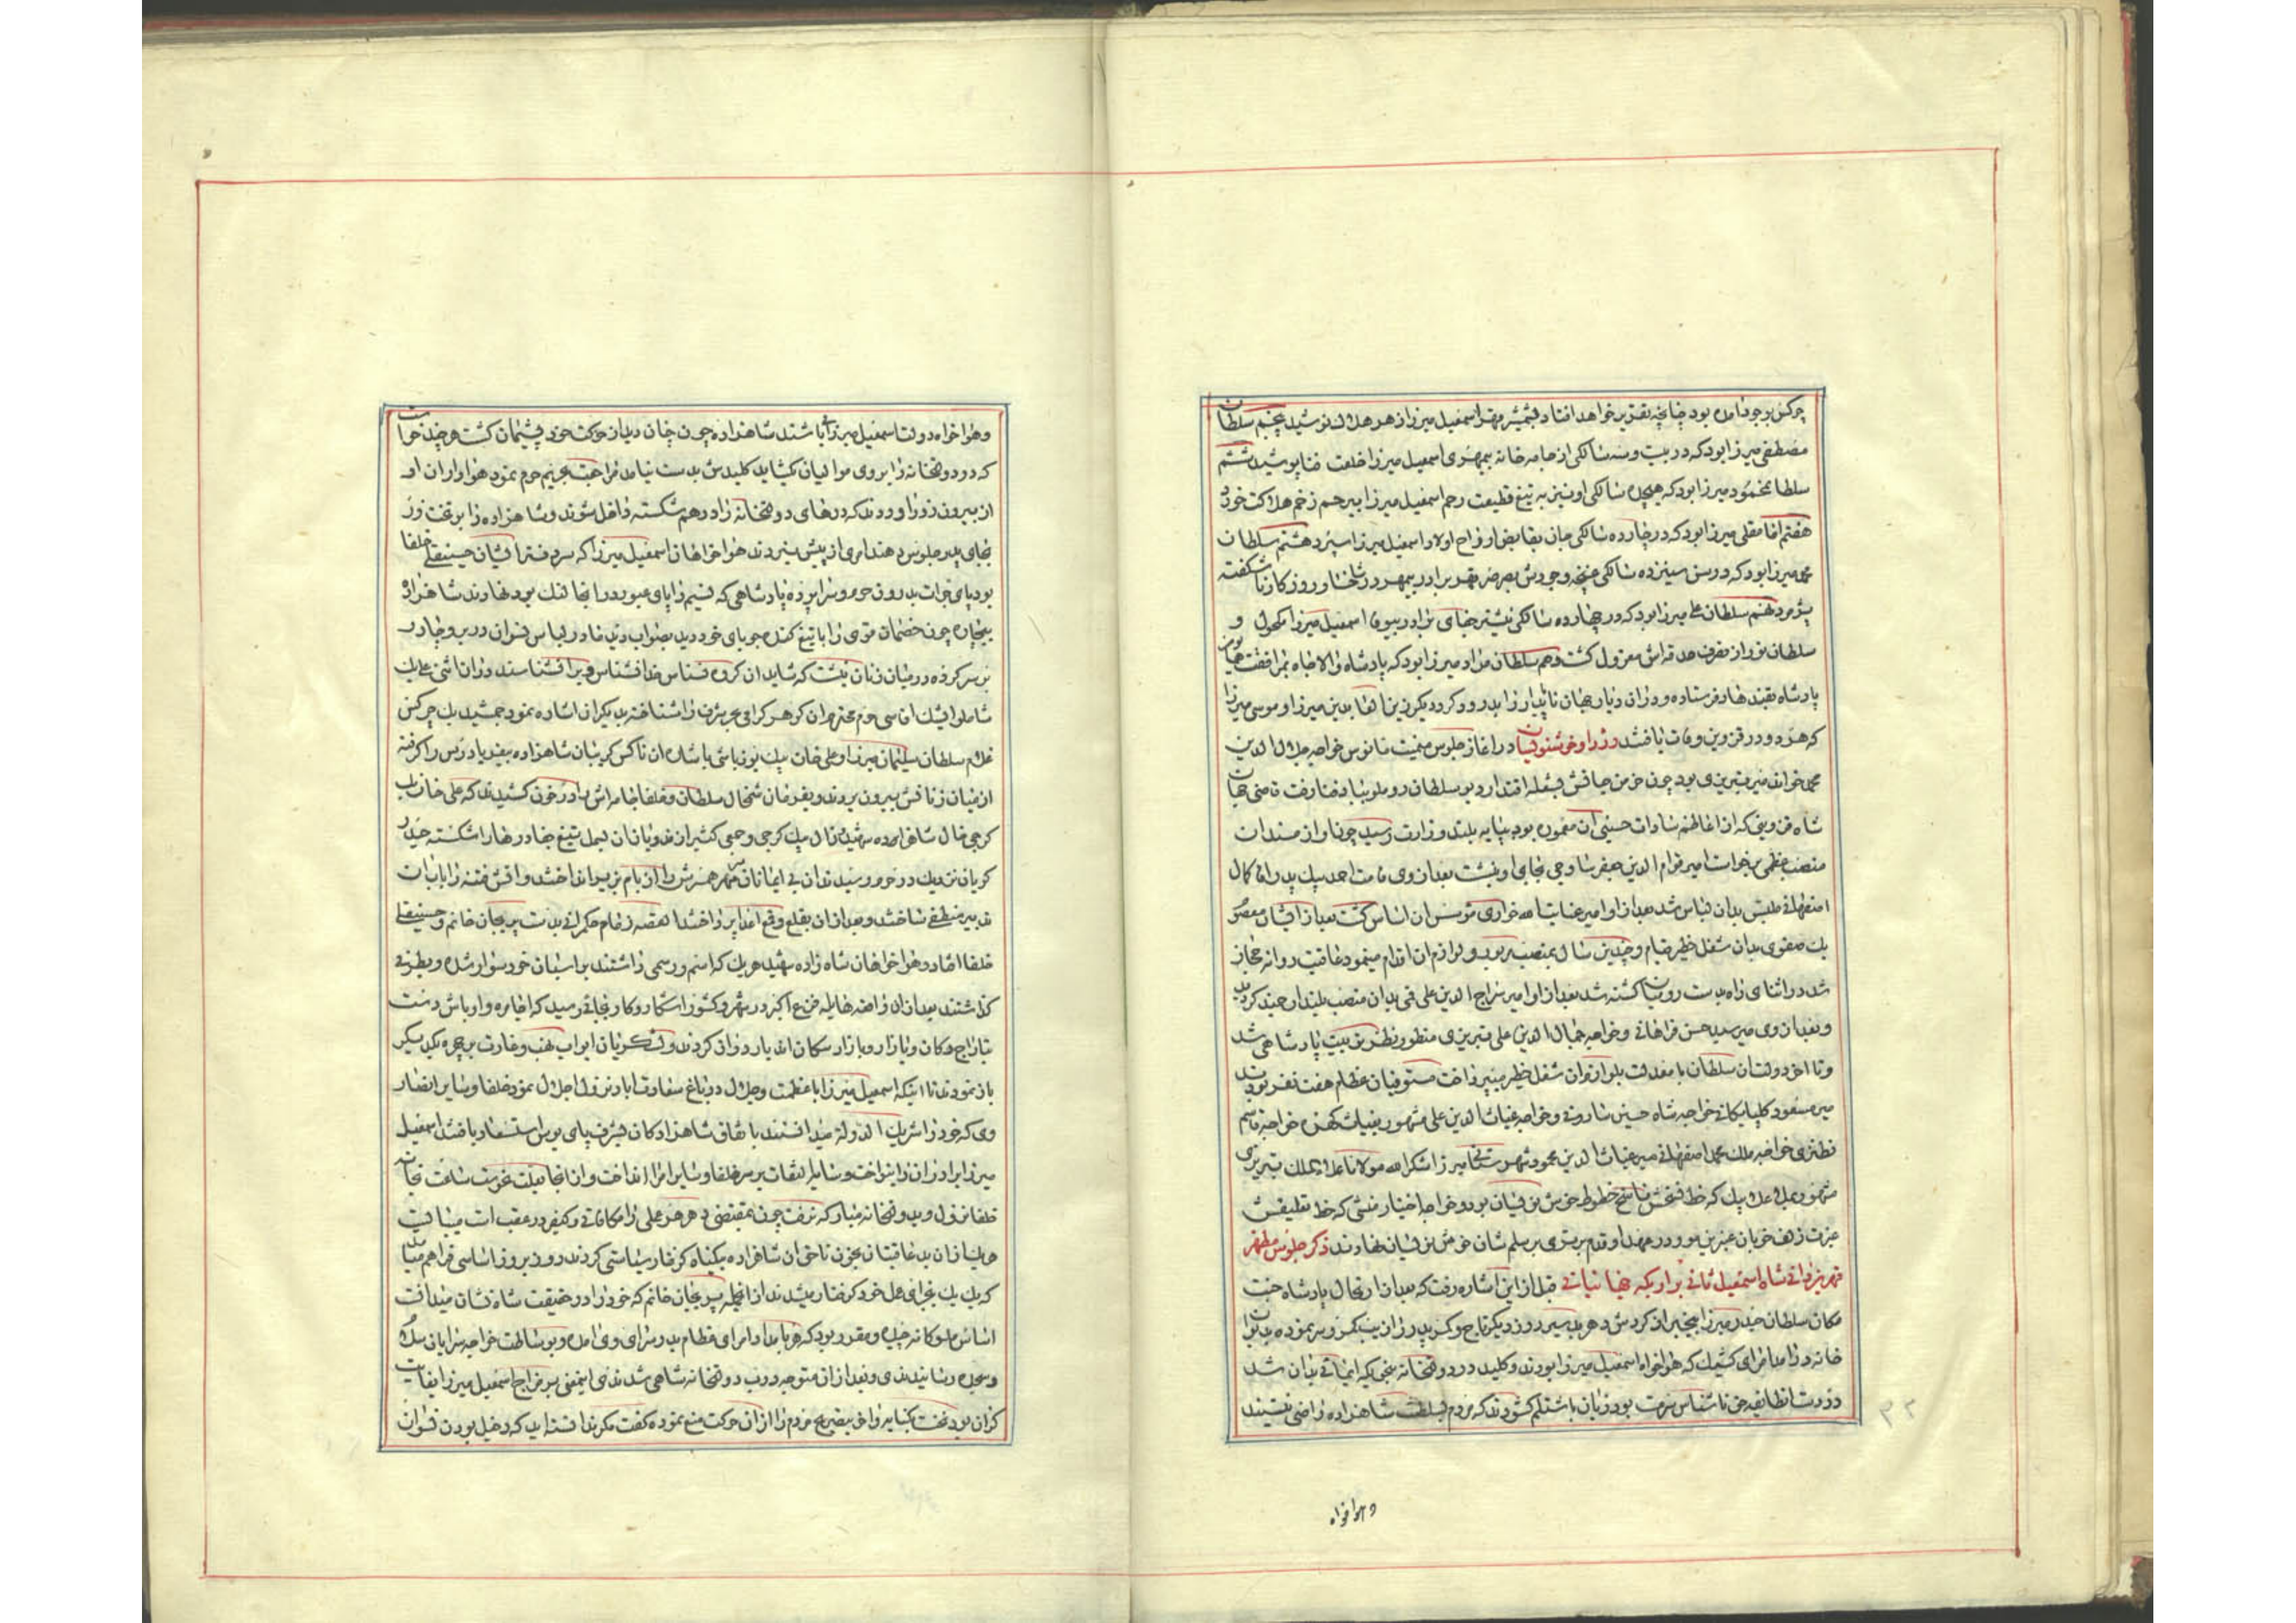 چرکس بوجود آمده بود چنانچه بتقریر خواهد افتاد بشمشیر قهر اسمعیل میرزا زهر هلاک نوشید پنجم سلطان
مصطفی میرزا بود که در بیست و سه سالکی از جامه خانه بیمهری اسمعیل میرزا خلعت فنا پوشید ششم
سلطان محمود میرزا بود که هیجده سالکی او نیز به تیغ قطیعت رحم اسمعیل میرزا بیرحم زخم هلاکت خورد
هفتم امامقلی میرزا بود که در چهارده سالکی جان بقابض ارواح اولاد اسمعیل میرزا سپرد هشتم سلطان
محمد میرزا بود که در سن سیزده سالکی غنچه وجودش بصرصر قهر برادر بیمهر در شاخسار روزکار ناشکفته
پژمرد نهم سلطان علی میرزا بود که در چهارده سالکی نیشتر جفای برادر بیوفا اسمعیل میرزا مکحول و
سلطان نور از تصرف حدقه اش معزول کشت دهم سلطان مراد میرزا بود که پادشاه والاجاه بمرافقت همایون
پادشاه بقندهار فرستاده و در آن دیار جهان ناپایدار را بدرود کرد دیکر زین العابدین میرزا و موسی میرزا
که هر دو در قزوین وفات یافتند وزرا و خوشنویسان در آغاز جلوس میمنت مانوس خواجه جلال الدین
محمد خوانده میر تبریزی بود چون خرمن حیاتش بشعله اقتدار دیو سلطان روملو بباد فنا رفت قاضی جهان
شاه قزوینی که از اعاظم سادات حسینی آن معموره بود بپایه بلند وزارت رسید چون او از مسند آن
منصب عظمی برخواست امیر قوام الدین جعفر ساوجی بجای او نشست بعد از وی قامت احمد بیک نور کمال
اصفهانی ملبس بدان لباس شد بعد از او امیر عنایت الله خوزانی مؤسس آن اساس کشت بعد از ایشان معصوم
بک صفوی بدان شغل خطیر قیام و چندین سال بمنصب مزبور و لوازم آن اقدام مینمود عاقبت روانه حجاز
شد در اثنای راه بدست رومیان کشته شد بعد از او امیر سراج الدین علی قمی بدان منصب بلند ارجمند کردید
و بعد از وی میر سید حسن فراهانی و خواجه جمال الدین علی تبریزی منظور نظر تربیت پادشاهی شد
و تا آخر دولت آن سلطان بامعدلت بلوازم آن شغل خطیر میپرداخت مستوفیان عظام هفت نفر بودند
میر مسعود کلپایکانی خواجه شاه حسین ساروقی و خواجه غیاث الدین علی مشهور بغیاث کهره خواجه قاسم
نطنزی خواجه ملک محمد اصفهانی میر غیاث الدین محمود شهرستانی میرزا شکرالله مولانا عبدالملک تبریزی
مشهور بملا عبد بیک که خط نسخش ناسخ خطوط خوش نویسان بود و خواجه اختیار منشی که خط تعلیقش
غیرت زلف خوبان عنبرین مو در مهد او قدم برتری بر سلم شان خوش نویسان نهادند ذکر جلوس مظهر
قهر یزدانی شاه اسمعیل ثانی بر اریکه جهانبانی قبل از این اشاره رفت که بعد از ارتحال پادشاه جنت
مکان سلطان حیدر میرزا بیخبر از کردش دهر بد سیر روز دیکر تاج و کمر پدر را زیب کمر و سر نموده بدیوان
خانه درآمد امرای کشیک که هواخواه اسمعیل میرزا بودند و کلید در دولتخانه بنحویکه ایمائی بدان شد
در دست آن طایفه حق ناشناس بود زبان باشتلم کشودند که مردم بسلطنت شاهزاده راضی نیستند
وهواخواه
وهواخواه دولت اسمعیل میرزا میباشند شاهزاده چون چنان دید از حرکت خود پشیمان کشت و چند خواست
که در دولتخانه را بروی موالیان بکشاید کلیدش بدست نیامد مراجعت بحریم حرم نمود هواداران او
از بیرون زور آوردند که درهای دولتخانه را درهم شکسته داخل شوند و شاهزاده را بر تخت زر
بجای پدر جلوس دهند امری از پیش نبردند هواخواهان اسمعیل میرزا که سر دفتر ایشان حسینقلی خلفا
بود پای جرات بدرون حرم سرا برده پادشاهی که نسیم را پای عبور در آنجا لنک بود نهادند شاهزاده
بیچاره چون خصمان قوی را با تیغ کنده جویای خود دید بصواب دید مادر لباس نسوان در بر و چادر
بر سر کرده در میان زنان نشست که شاید آن کروه نسناس خدا نشناس ویرا نشناسند در آن اثنا علی بک
شاملو ایشک آقاسی حرم محترم آن کوهر کرامی بحر شرف را شناخته بدیکران اشاره نمود جمشید بک چرکس
غلام سلطان سلیمان میرزا و علی خان بیک یوزباشی باشاره آن ناکس کریبان شاهزاده بیفریادرس را کرفته
از میان زنانش بیرون بردند و بفرمان شمخال سلطان و خلفا جامه اش را در خون کشیدند که علی خان بک
کرجی خال شاهزاده شهید و زال بیک کرجی و جمعی کثیر از فدویان آن حمل بتیغ جفا درها را شکسته حیدر
کویان نزدیک در حرم رسیدند آن بی ایمانان سر مهر همسرش را از بام بزیر انداختند و آتش فتنه را بآب آن
تدبیر منطفی ساختند و بعد از آن بقلع و قمع اعدا پرداختند القصه زمام حکمرانی بدست پریجان خانم و حسینقلی
خلفا افتاد و هواخواهان شاه زاده شهید هریک که اسم و رسمی داشتند بر اسبان خود سوار شده و بطرفی
کذاشتند بعد از آن واقعه هایله فزع اکبر در شهر و کشور آشکار و کار بجائی رسید که اجامره و اوباش دست
بتاراج دکان و بازار و بازار سکان آن دیار دراز کردند و لشکریان ابواب نهب و غارت بر چهره یکدیکر
باز نمودند تا اینکه اسمعیل میرزا با عظمت و جلال در باغ سعادت آباد نزول اجلال نمود خلفا و سایر انصار
وی که خود را شریک الدوله میدانستند باتفاق شاهزادکان بشرف پای بوس استسعاد یافتند اسمعیل
میرزا برادران را بنواخت و سایه التفات بر سر خلفا و سایر امرا انداخت و از آنجا بیک عزیمت ساعت بخانه
خلفا نزول و بدولتخانه مبارکه نرفت چون بمقتضی دهر هر عملی را مکافاتی و کیفر در عقب است میبایست
هریک از آن بدعاقبتان بخون ناحق آن شاهزاده بیکناه کرفتار سیاستی کردند روز بروز اساسی فراهم میآمد
که یک یک بجزای عمل خود کرفتار میشدند از آنجمله پریجان خانم که خود را در حقیقت شاه نشان میدانست
اساس ملوکانه چیده و مقرر بود که هر بامداد امرای عظام بدر سرای وی آمده و بوساطت خواجه سرایان سلام
و سجده رسانیدندی و بعد از آن متوجه درب دولتخانه شاهی شدندی اینمعنی بر مزاج اسمعیل میرزا بغایت
کران بود نخست بکنایه و آخر بتصریح مردم را از آن حرکت منع نموده کفت مکر ندانسته اید که دخیل بودن نسوان